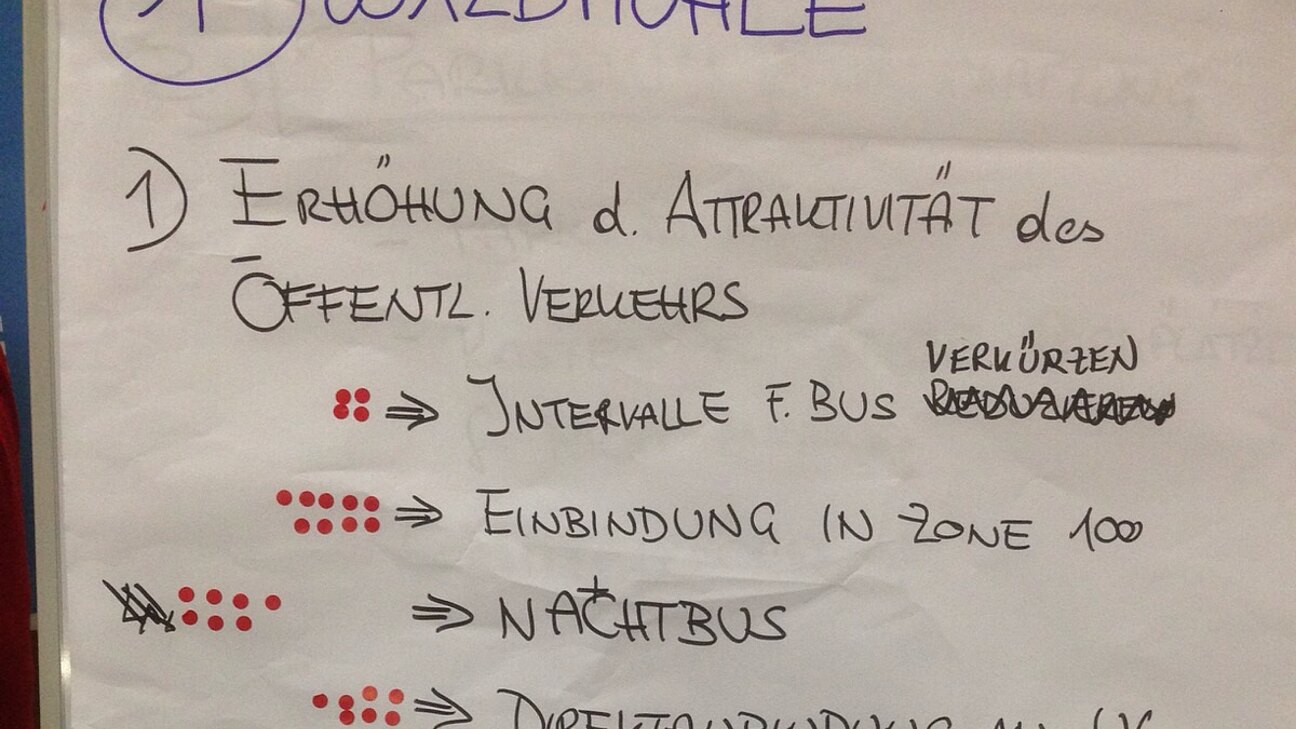 1 WALDMÜHLE
1) ERHÖHUNG d. ATTRAKTIVITÄT des
ÖFFENTL. VERKEHRS
VERKÜRZEN
⇒ INTERVALLE F. BUS
⇒ EINBINDUNG IN ZONE 100
⇒ NACHTBUS
⇒ DIREKTANBINDUNG